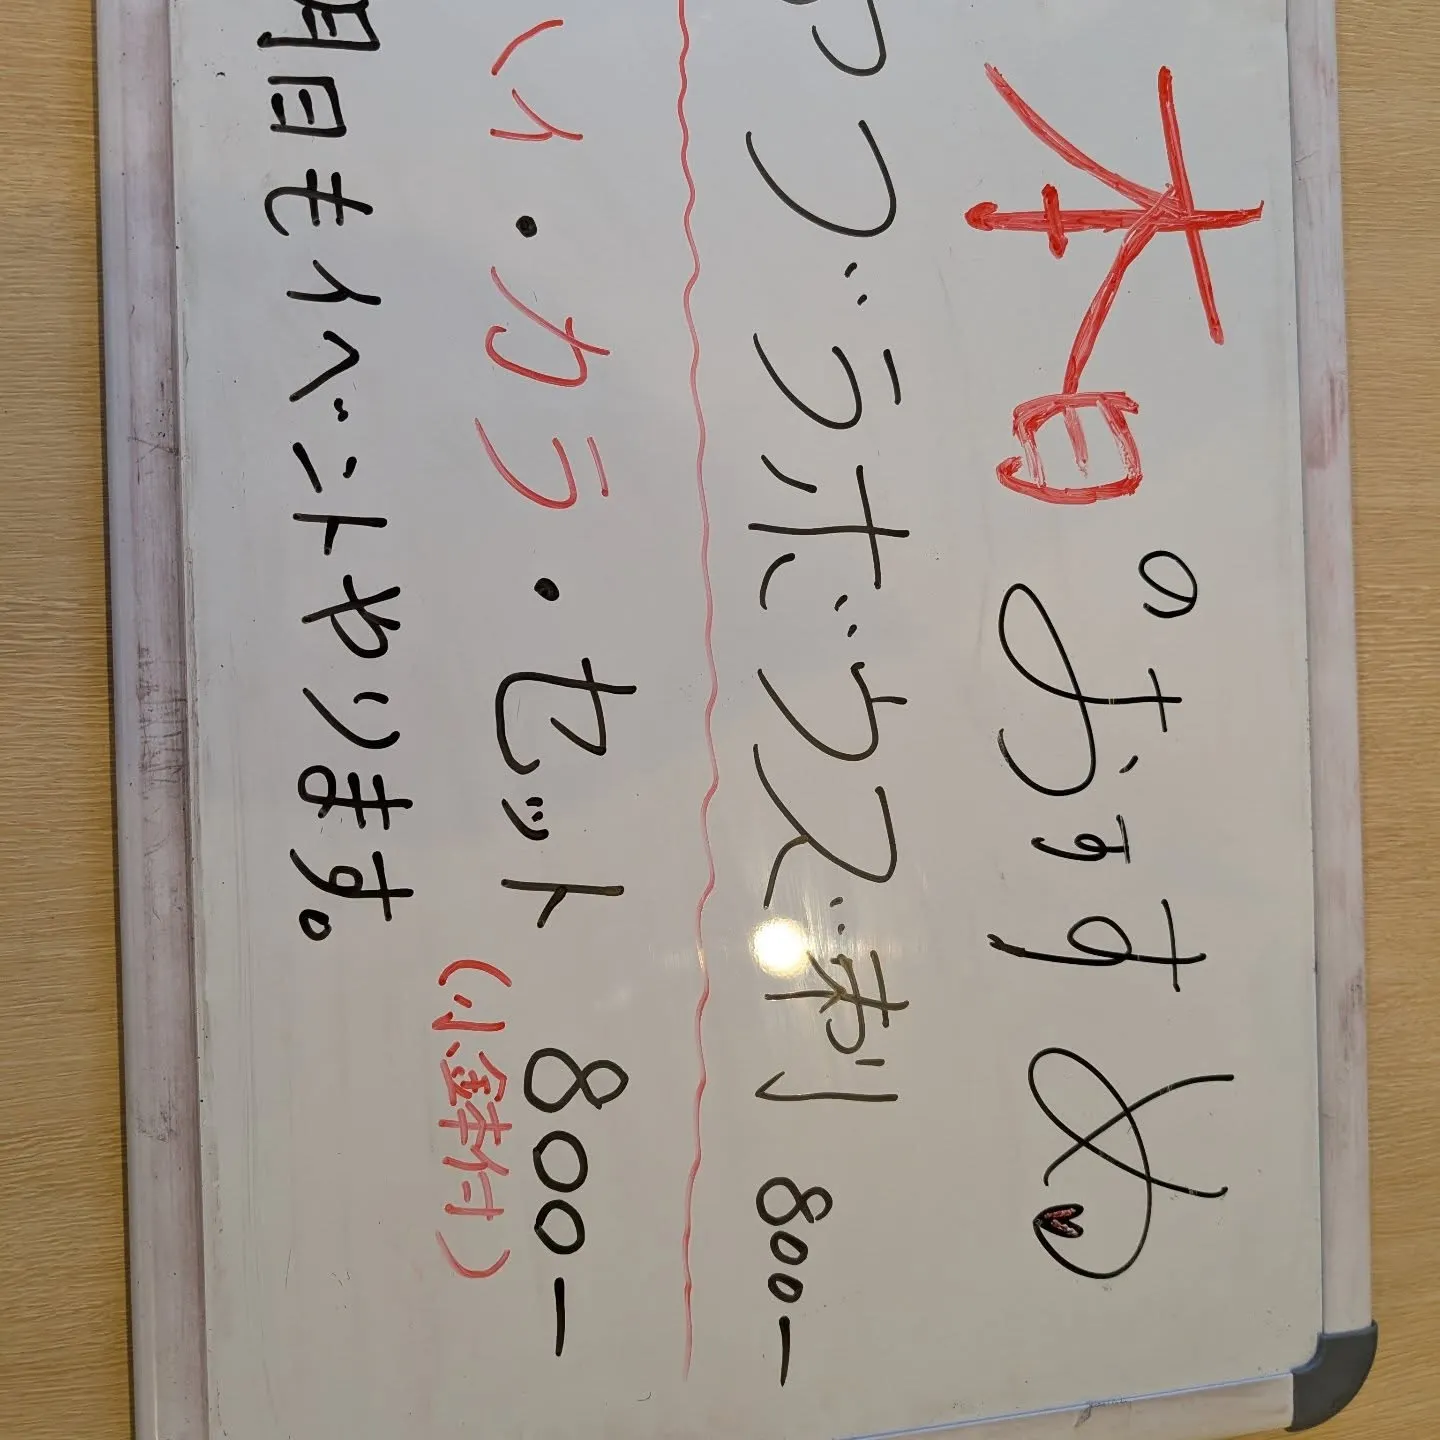 本日のおすすめ♥
アブラボウズ刺 800-
ハイ・カラ・セット 800-
(小鉢付)
明日もイベントやります。